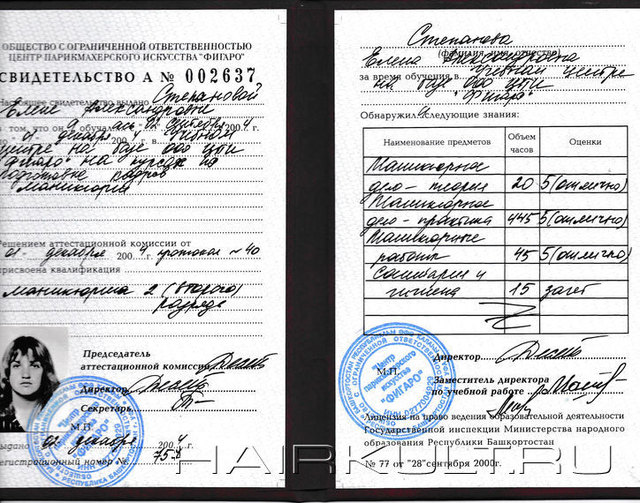 ОБЩЕСТВО С ОГРАНИЧЕННОЙ ОТВЕТСТВЕННОСТЬЮ
ЦЕНТР ПАРИКМАХЕРСКОГО ИСКУССТВА "ФИГАРО"
СВИДЕТЕЛЬСТВО А № 002637
Настоящее свидетельство выдано Степановой
Елене Александровне
в том, что он
по "01" декабря 2004 г. учебном
центре на базе ООО ЦПИ
"Фигаро" на курсах по
подготовке кадров
маникюрша
Решением аттестационной комиссии от
01 декабря 2004 протокол №40
присвоена квалификация
маникюрша 2 (второго)
разряда
Председатель
аттестационной комиссии
Директор
Секретарь
М.П.
Выдано 01 декабря 2004
Регистрационный номер № 758
Степанова
(фамилия, имя, отчество)
Елена Александровна
за время обучения в учебном центре
на базе ООО ЦПИ
"Фигаро"
Обнаружил следующие знания:
Наименование предметов Объем часов Оценки
Маникюрное
дело - теория 20 5(отлично)
Маникюрное
дело - практика 445 5(отлично)
Маникюрные
работы 45 5(отлично)
Санитария и
гигиена 15 зачет
Директор
М.П.
Заместитель директора
по учебной работе
"Центр
парикмахерского
искусства
"ФИГАРО"
Лицензия на право ведения образовательной деятельности
Государственной инспекции Министерства народного
образования Республики Башкортостан
№ 77 от "28"сентября 2000г.
HAIRKULT.RU